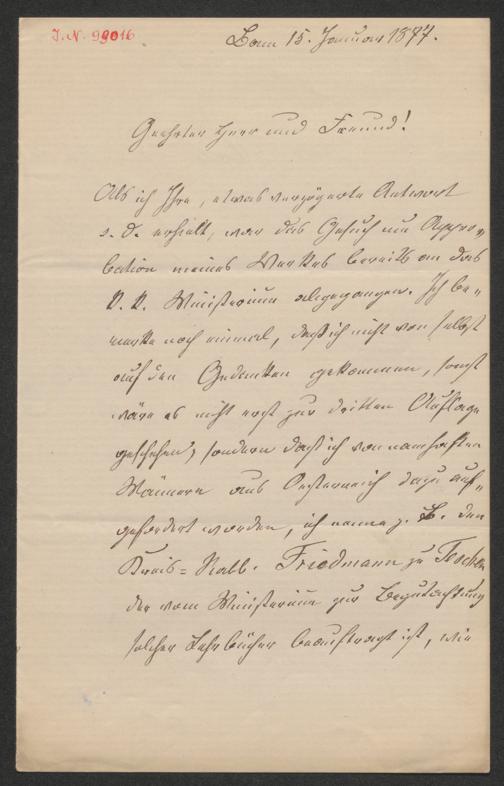 J. N. 99016
Bonn 15. Januar 1877.
Geehrter Herr und Freund!
Als ich Ihre, etwas verzögerte Antwort
s. Z. erhielt, war das Gesuch um Appro-
bation meines Werkes bereits an das
k. k. Ministerium abgegangen. Ich be-
merke noch einmal, daß ich nicht von selbst
auf den Gedanken gekommen, sonst
wäre es nicht erst zur dritten Auflage
geschehen, sondern daß ich von namhaften
Männern aus Oesterreich dazu auf-
gefordert worden, ich nenne z. B. den
Kreis-Rabb. Friedmann zu Teschen
der vom Ministerium zur Begutachtung
solcher Lehrbücher beauftragt ist, wie